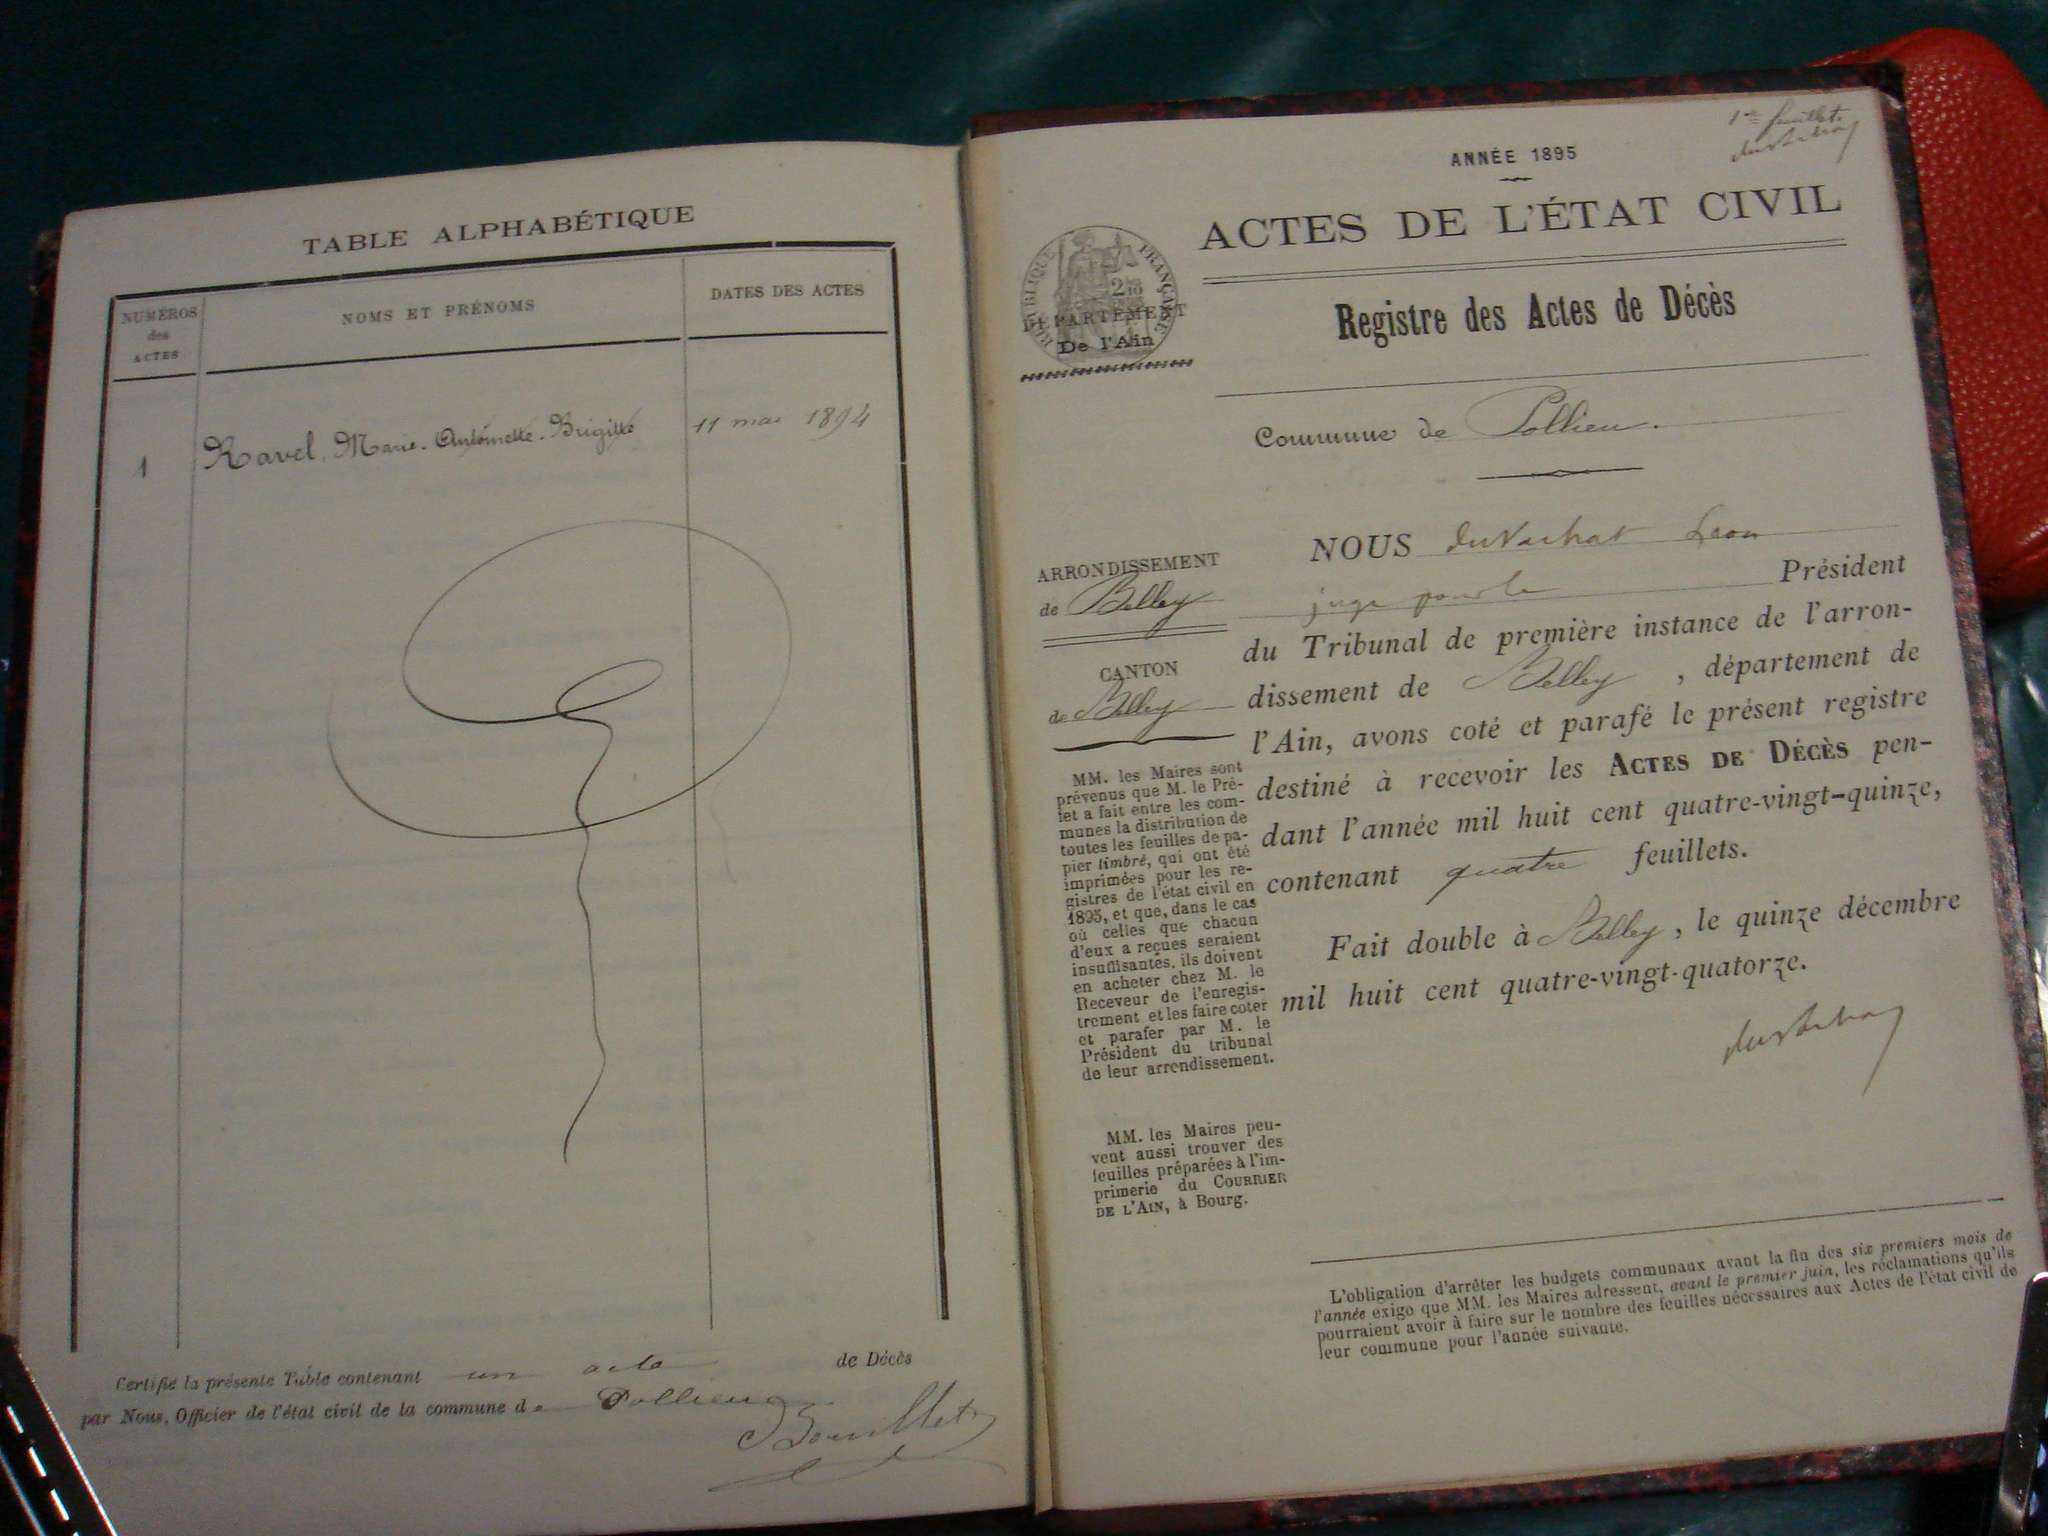 TABLE ALPHABÉTIQUE
NUMÉROS
des
ACTES
NOMS ET PRÉNOMS
DATES DES ACTES
1 Ravel, Marie-Antoinette-Brigitte 11 mai 1894
Certifié la présente Table contenant un acte de Décès
par Nous, Officier de l'état civil de la commune de Pollieu
Bouillet
1er feuillet
ANNÉE 1895
ACTES DE L'ÉTAT CIVIL
RÉPUBLIQUE FRANÇAISE
DÉPARTEMENT
De l'Ain
Registre des Actes de Décès
Commune de Pollieu.
ARRONDISSEMENT
de Belley
CANTON
de Belley
MM. les Maires sont
prévenus que M. le Pré-
fet a fait entre les com-
munes la distribution de
toutes les feuilles de pa-
pier timbré, qui ont été
imprimées pour les re-
gistres de l'état civil en
1895, et que, dans le cas
où celles que chacun
d'eux a reçues seraient
insuffisantes, ils doivent
en acheter chez M. le
Receveur de l'enregis-
trement et les faire coter
et parafer par M. le
Président du tribunal
de leur arrondissement.
MM. les Maires peu-
vent aussi trouver des
feuilles préparées à l'im-
primerie du COURRIER
DE L'AIN, à Bourg.
NOUS duVachat Léon
juge pour le Président
du Tribunal de première instance de l'arron-
dissement de Belley, département de
l'Ain, avons coté et parafé le présent registre
destiné à recevoir les ACTES DE DÉCÈS pen-
dant l'année mil huit cent quatre-vingt-quinze,
contenant quatre feuillets.
Fait double à Belley, le quinze décembre
mil huit cent quatre-vingt-quatorze.
L'obligation d'arrêter les budgets communaux avant la fin des six premiers mois de
l'année exige que MM. les Maires adressent, avant le premier juin, les réclamations qu'ils
pourraient avoir à faire sur le nombre des feuilles nécessaires aux Actes de l'état civil de
leur commune pour l'année suivante.